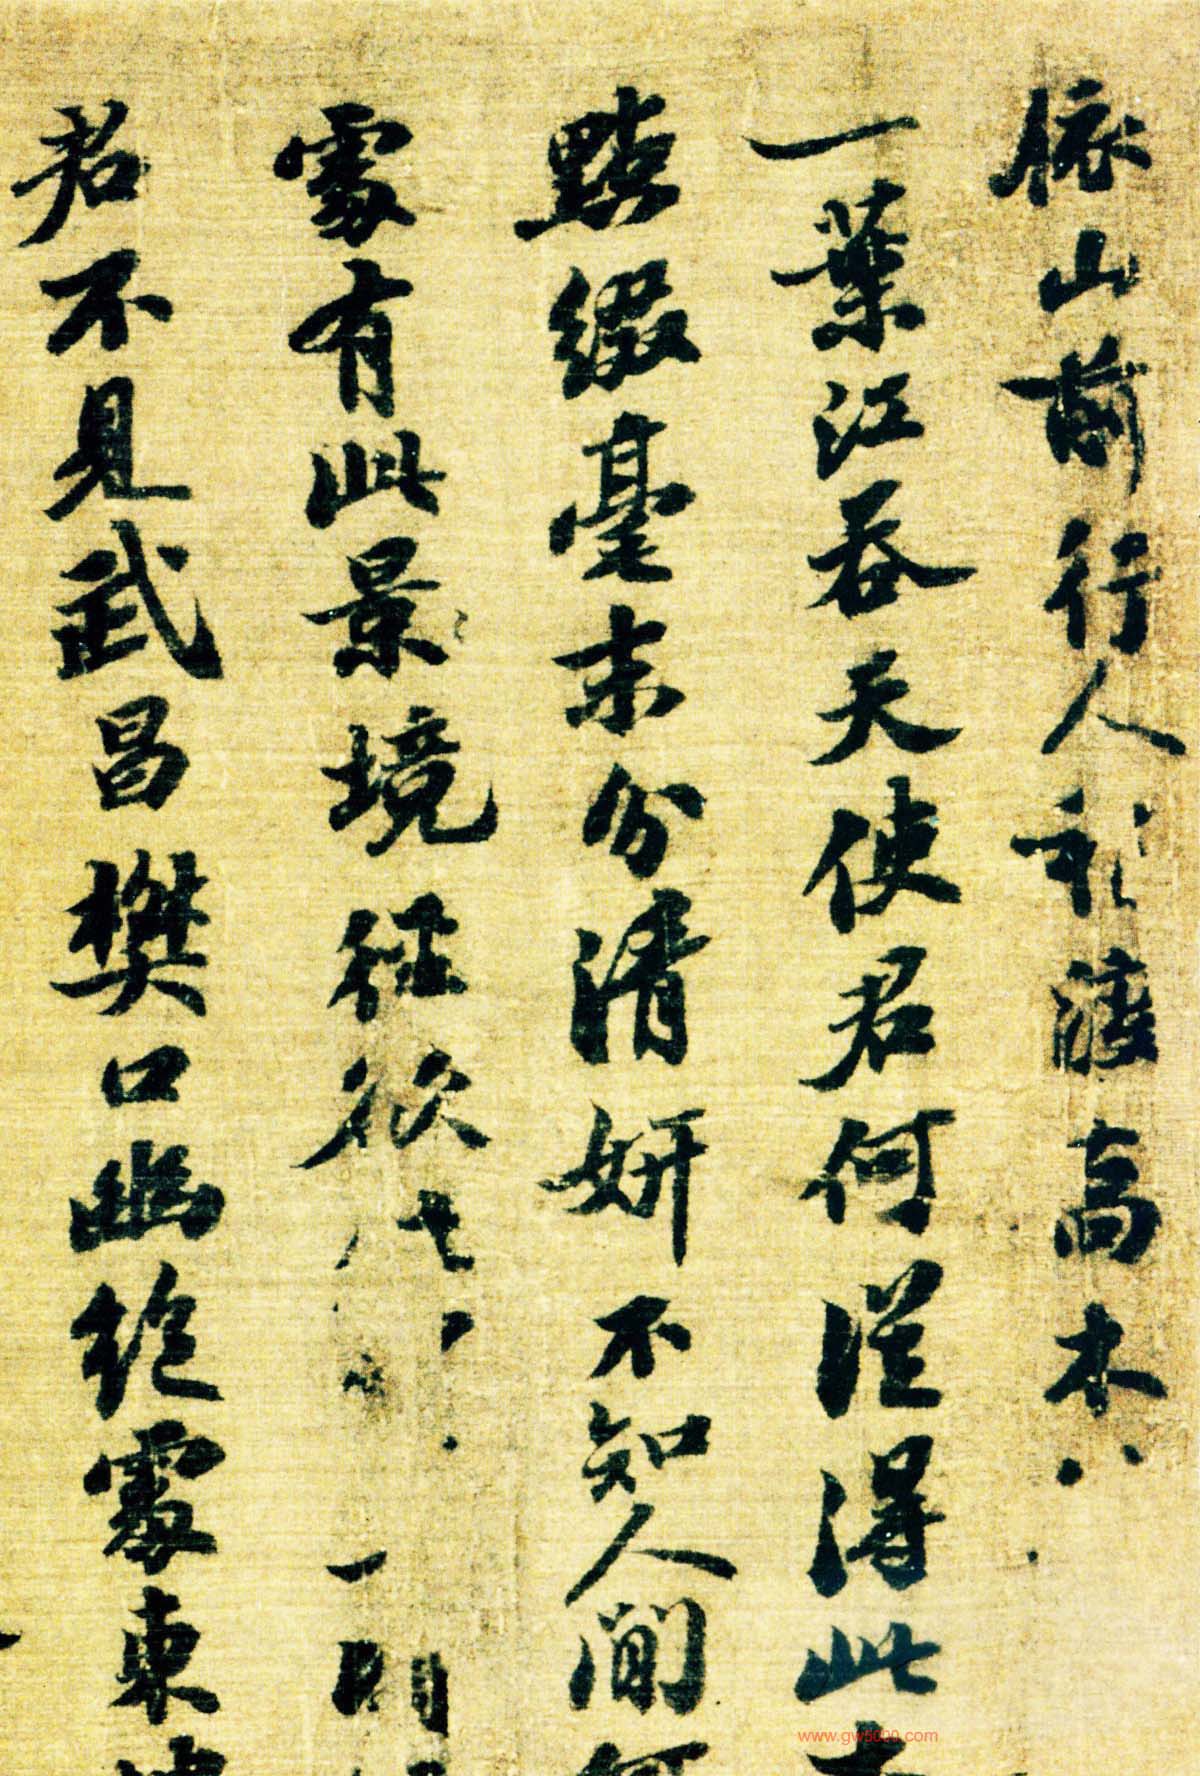 依山前行人稍渡高木
一葉江吞天使君何從得此本
點綴毫末分清妍不知人間何
處有此景境徑欲
君不見武昌樊口幽絕處東坡
www.gw5000.com